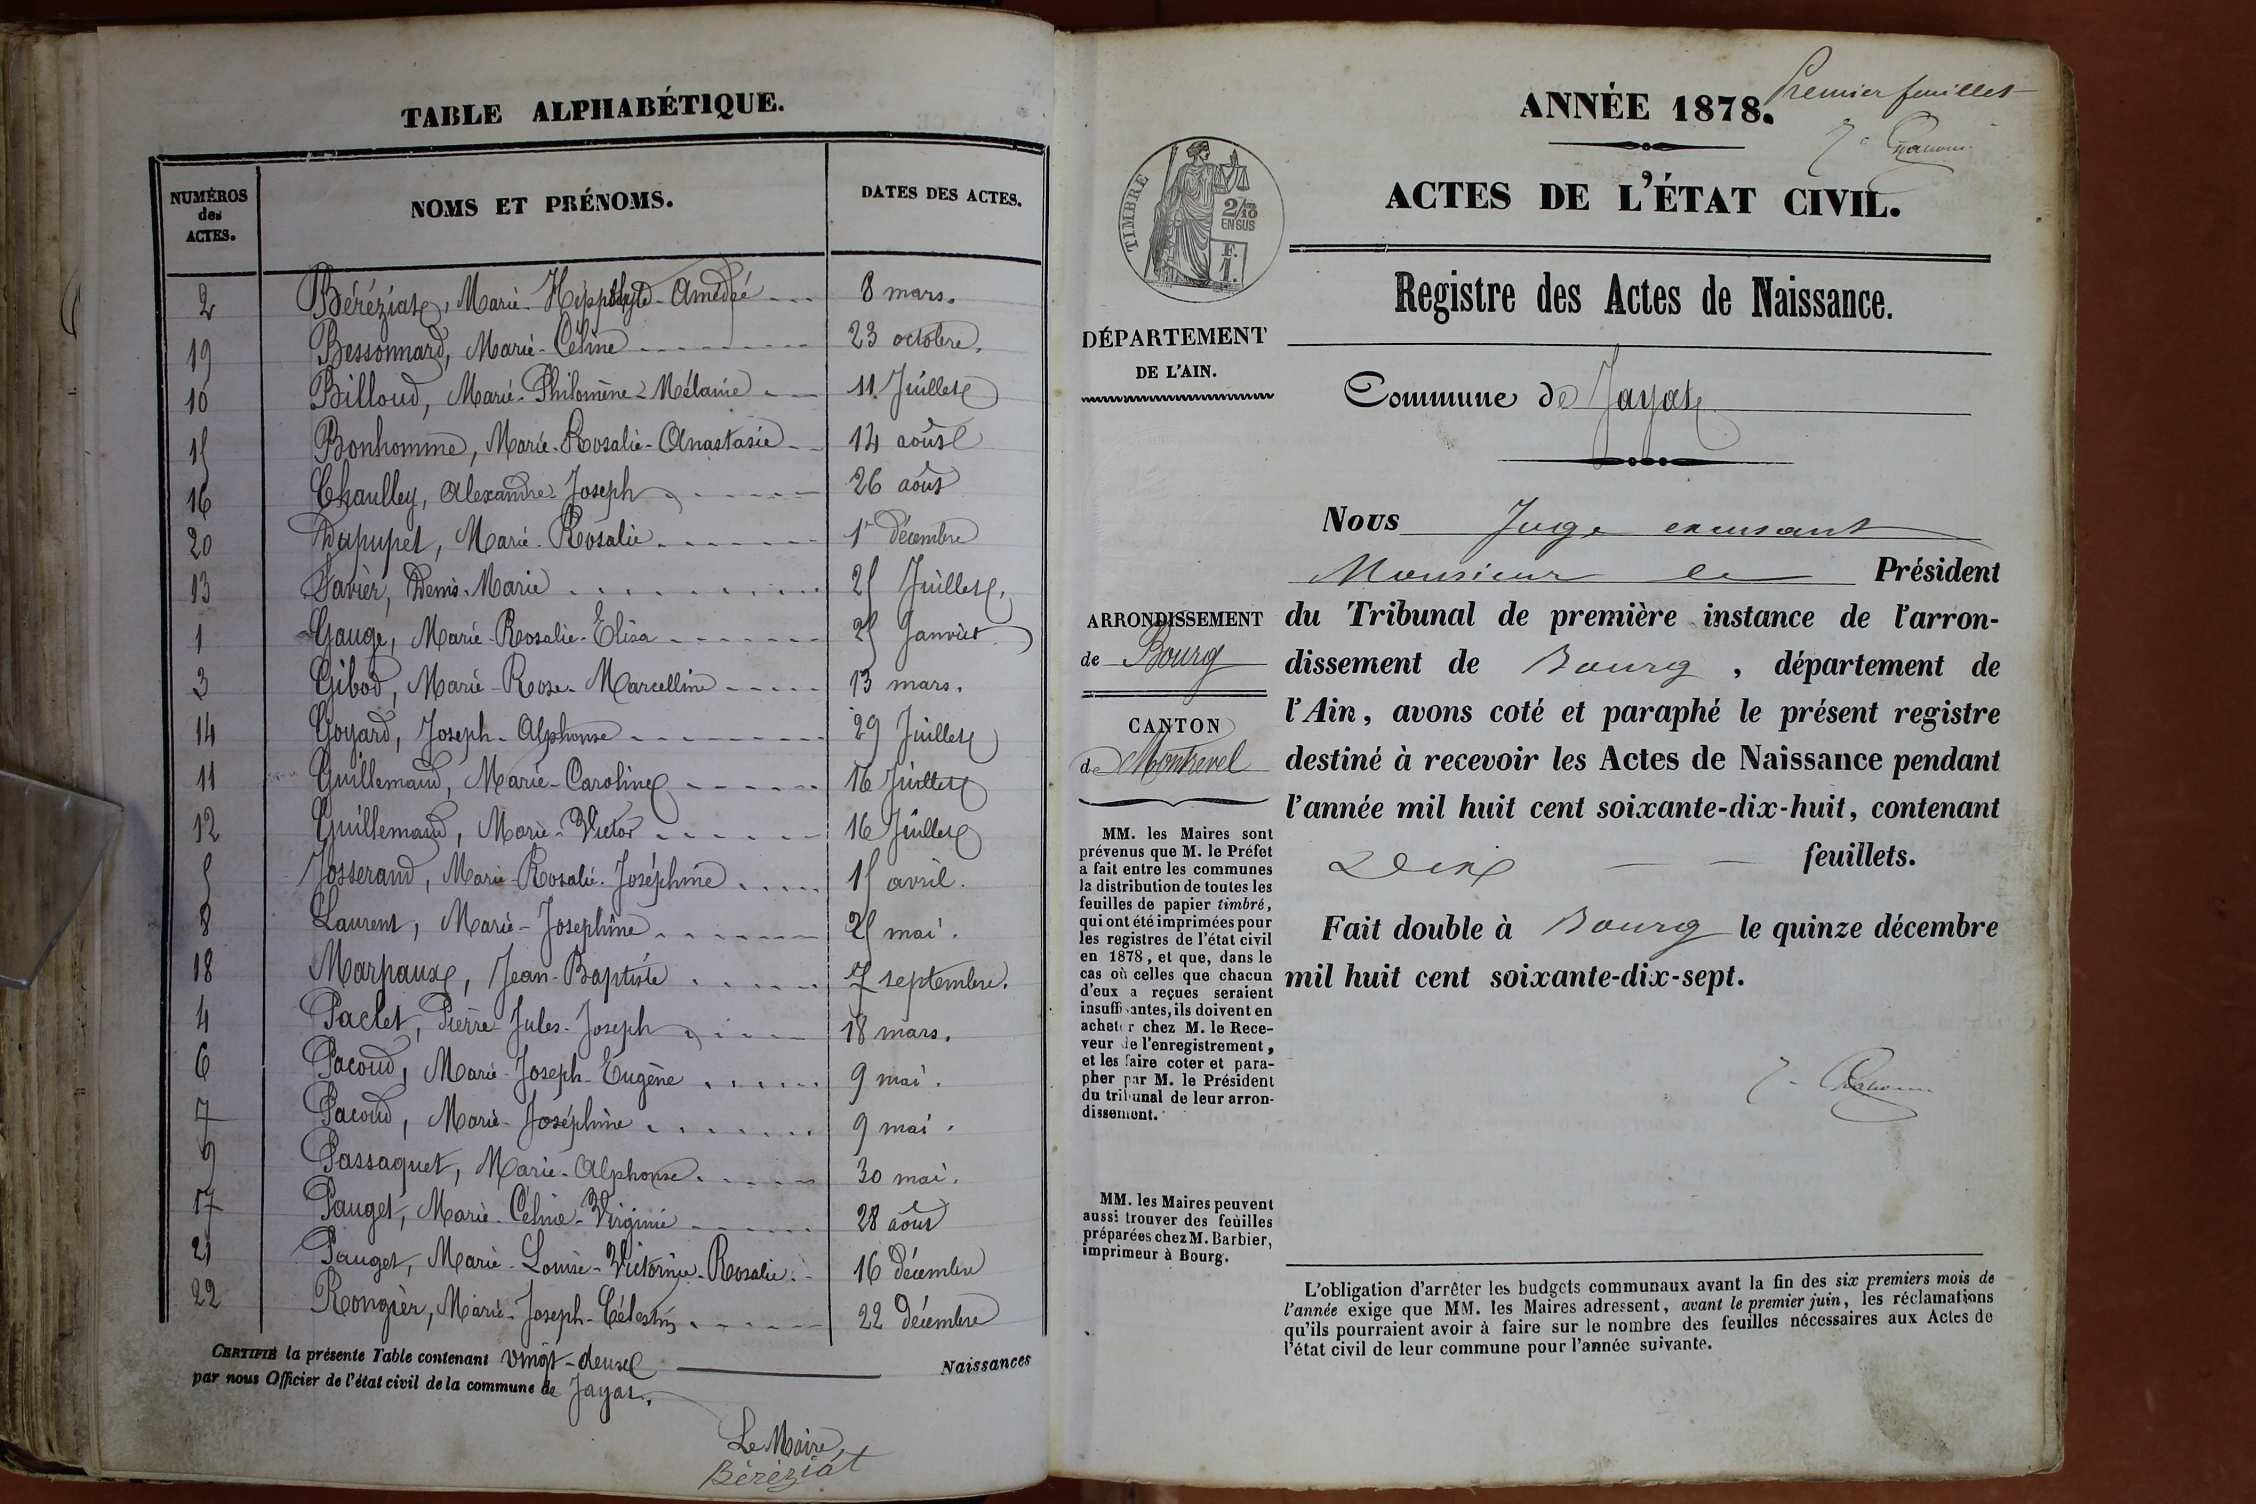 TABLE ALPHABÉTIQUE.
NUMÉROS des ACTES. NOMS ET PRÉNOMS. DATES DES ACTES.
2 Béréziat, Marie-Hippolyte-Amédée 8 mars.
19 Bessonnard, Marie-Céline 23 octobre.
10 Billoud, Marie-Philomène-Mélanie 11 Juillet
15 Bonhomme, Marie-Rosalie-Anastasie 14 août
16 Chaulley, Alexandre-Joseph 26 août
20 Dapupet, Marie-Rosalie 1er décembre
13 Favier, Denis-Marie 25 Juillet.
1 Gauge, Marie-Rosalie-Elisa 25 Janvier
3 Gibod, Marie-Rose-Marcelline 13 mars.
14 Goyard, Joseph-Alphonse 29 Juillet
11 Guillemaud, Marie-Caroline 16 Juillet
12 Guillemaud, Marie-Victor 16 Juillet
5 Josserand, Marie-Rosalie-Joséphine 15 avril.
8 Laurent, Marie-Joséphine 25 mai.
18 Marpaux, Jean-Baptiste 7 septembre.
4 Paclet, Pierre-Jules-Joseph 18 mars.
6 Pacoud, Marie-Joseph-Eugène 9 mai.
7 Pacoud, Marie-Joséphine 9 mai.
9 Passaquet, Marie-Alphonse 30 mai.
17 Pauget, Marie-Céline-Virginie 28 août
21 Pauget, Marie-Louise-Victorine-Rosalie 16 décembre
22 Rongier, Marie-Joseph-Célestin 22 décembre
CERTIFIÉ la présente Table contenant vingt-deux Naissances
par nous Officier de l'état civil de la commune de Jayat.
Le Maire
Béréziat
Premier feuillet
ANNÉE 1878.
ACTES DE L'ÉTAT CIVIL.
TIMBRE
2/10
EN SUS
F.
1.
Registre des Actes de Naissance.
DÉPARTEMENT
DE L'AIN.
Commune de Jayat
Nous Juge excusant
Monsieur le Président
du Tribunal de première instance de l'arron-
dissement de Bourg, département de
l'Ain, avons coté et paraphé le présent registre
destiné à recevoir les Actes de Naissance pendant
l'année mil huit cent soixante-dix-huit, contenant
Dix feuillets.
Fait double à Bourg le quinze décembre
mil huit cent soixante-dix-sept.
ARRONDISSEMENT
de Bourg
CANTON
de Montrevel
MM. les Maires sont
prévenus que M. le Préfet
a fait entre les communes
la distribution de toutes les
feuilles de papier timbré,
qui ont été imprimées pour
les registres de l'état civil
en 1878, et que, dans le
cas où celles que chacun
d'eux a reçues seraient
insuffisantes, ils doivent en
acheter chez M. le Rece-
veur de l'enregistrement,
et les faire coter et para-
pher par M. le Président
du tribunal de leur arron-
dissement.
MM. les Maires peuvent
aussi trouver des feuilles
préparées chez M. Barbier,
imprimeur à Bourg.
L'obligation d'arrêter les budgets communaux avant la fin des six premiers mois de
l'année exige que MM. les Maires adressent, avant le premier juin, les réclamations
qu'ils pourraient avoir à faire sur le nombre des feuilles nécessaires aux Actes de
l'état civil de leur commune pour l'année suivante.